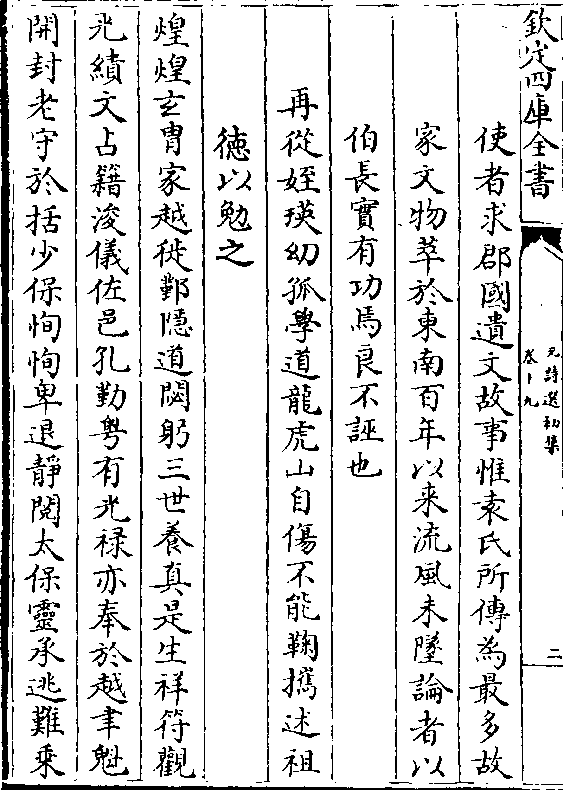 欽定四庫全書
元詩選初集
卷十九
二
使者求郡國遺文故事惟袁氏所傳為最多故
家文物萃於東南百年以来流風未墜論者以
伯長實有功焉良不誣也
再從姪瑛幼孤學道龍虎山自傷不能鞠攜述祖
徳以勉之
煌煌玄胄家越徙鄞隱道閟躬三世養真是生祥符觀
光績文占籍浚儀佐邑孔勤粤有光禄亦奉於越聿魁
開封老守於括少保恂恂卑退靜閱太保靈承逃難乗